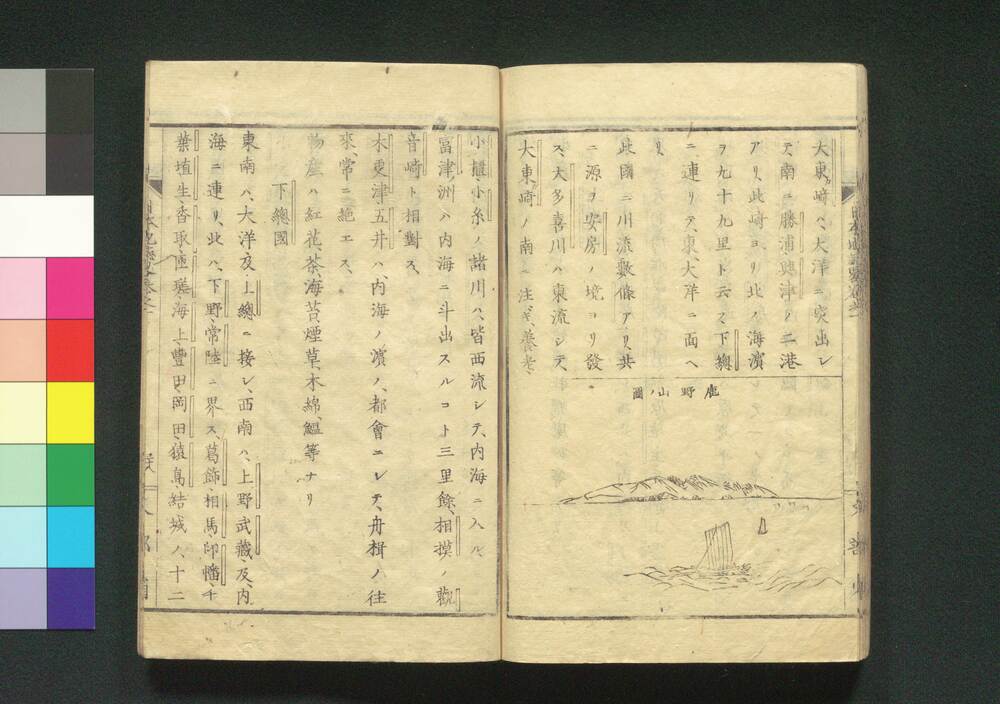 大東崎ハ、大洋ニ突出シ
テ、南ニ勝浦興津ノ二港
アリ、此崎ヨリ北ノ海濱
ヲ九十九里ト云ス、下總
ニ連リテ、東、大洋ニ面ヘ
リ、
此國ニ川流數條アリ、共
ニ源ヲ安房ノ境ヨリ發
ス、夭多喜川ハ東流シテ、
大東崎ノ南ニ注ギ、養老、
鹿野山ノ圖
小櫃、小糸ノ諸川ハ、皆西流シテ、内海ニ入ル、
富津洲ハ内海ニ斗出スルコト三里餘、相摸ノ觀
音崎ト相對ス、
木更津、五井ハ、内海ノ濱ノ、都會ニシテ、舟楫ノ往
來、常ニ絶エス、
物産ハ紅花、茶、海苔、煙草、木綿、鰮等ナリ
下總國
東南ハ、大洋及、上總ニ接シ、西南ハ、上野武藏、及、内
海ニ連リ、北ハ、下野、常陸ニ界ス、葛飾、相馬、印幡、千
葉、埴生、香取、匝瑳、海上、豐田、岡田、猿島、結城ノ、十二